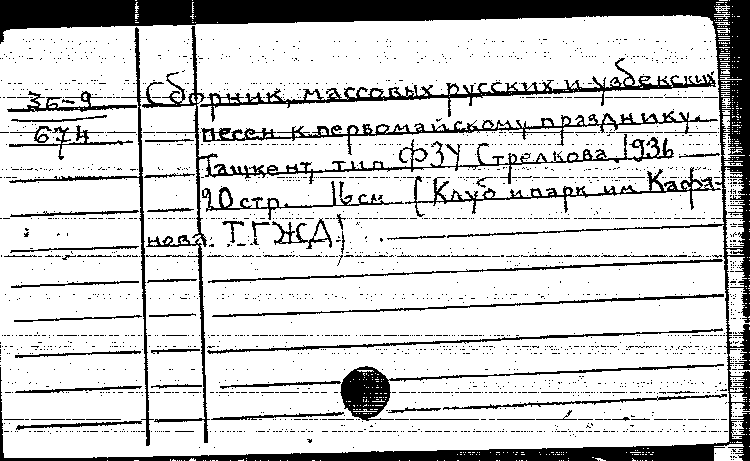 36-9
674
Сборник, массовых русских и узбекских
песен к первомайскому празднику.
Ташкент, тип ФЗУ Стрелкова. 1936
20 стр. 16 см (Клуб и парк им Кафа-
нова. ТГЖД)